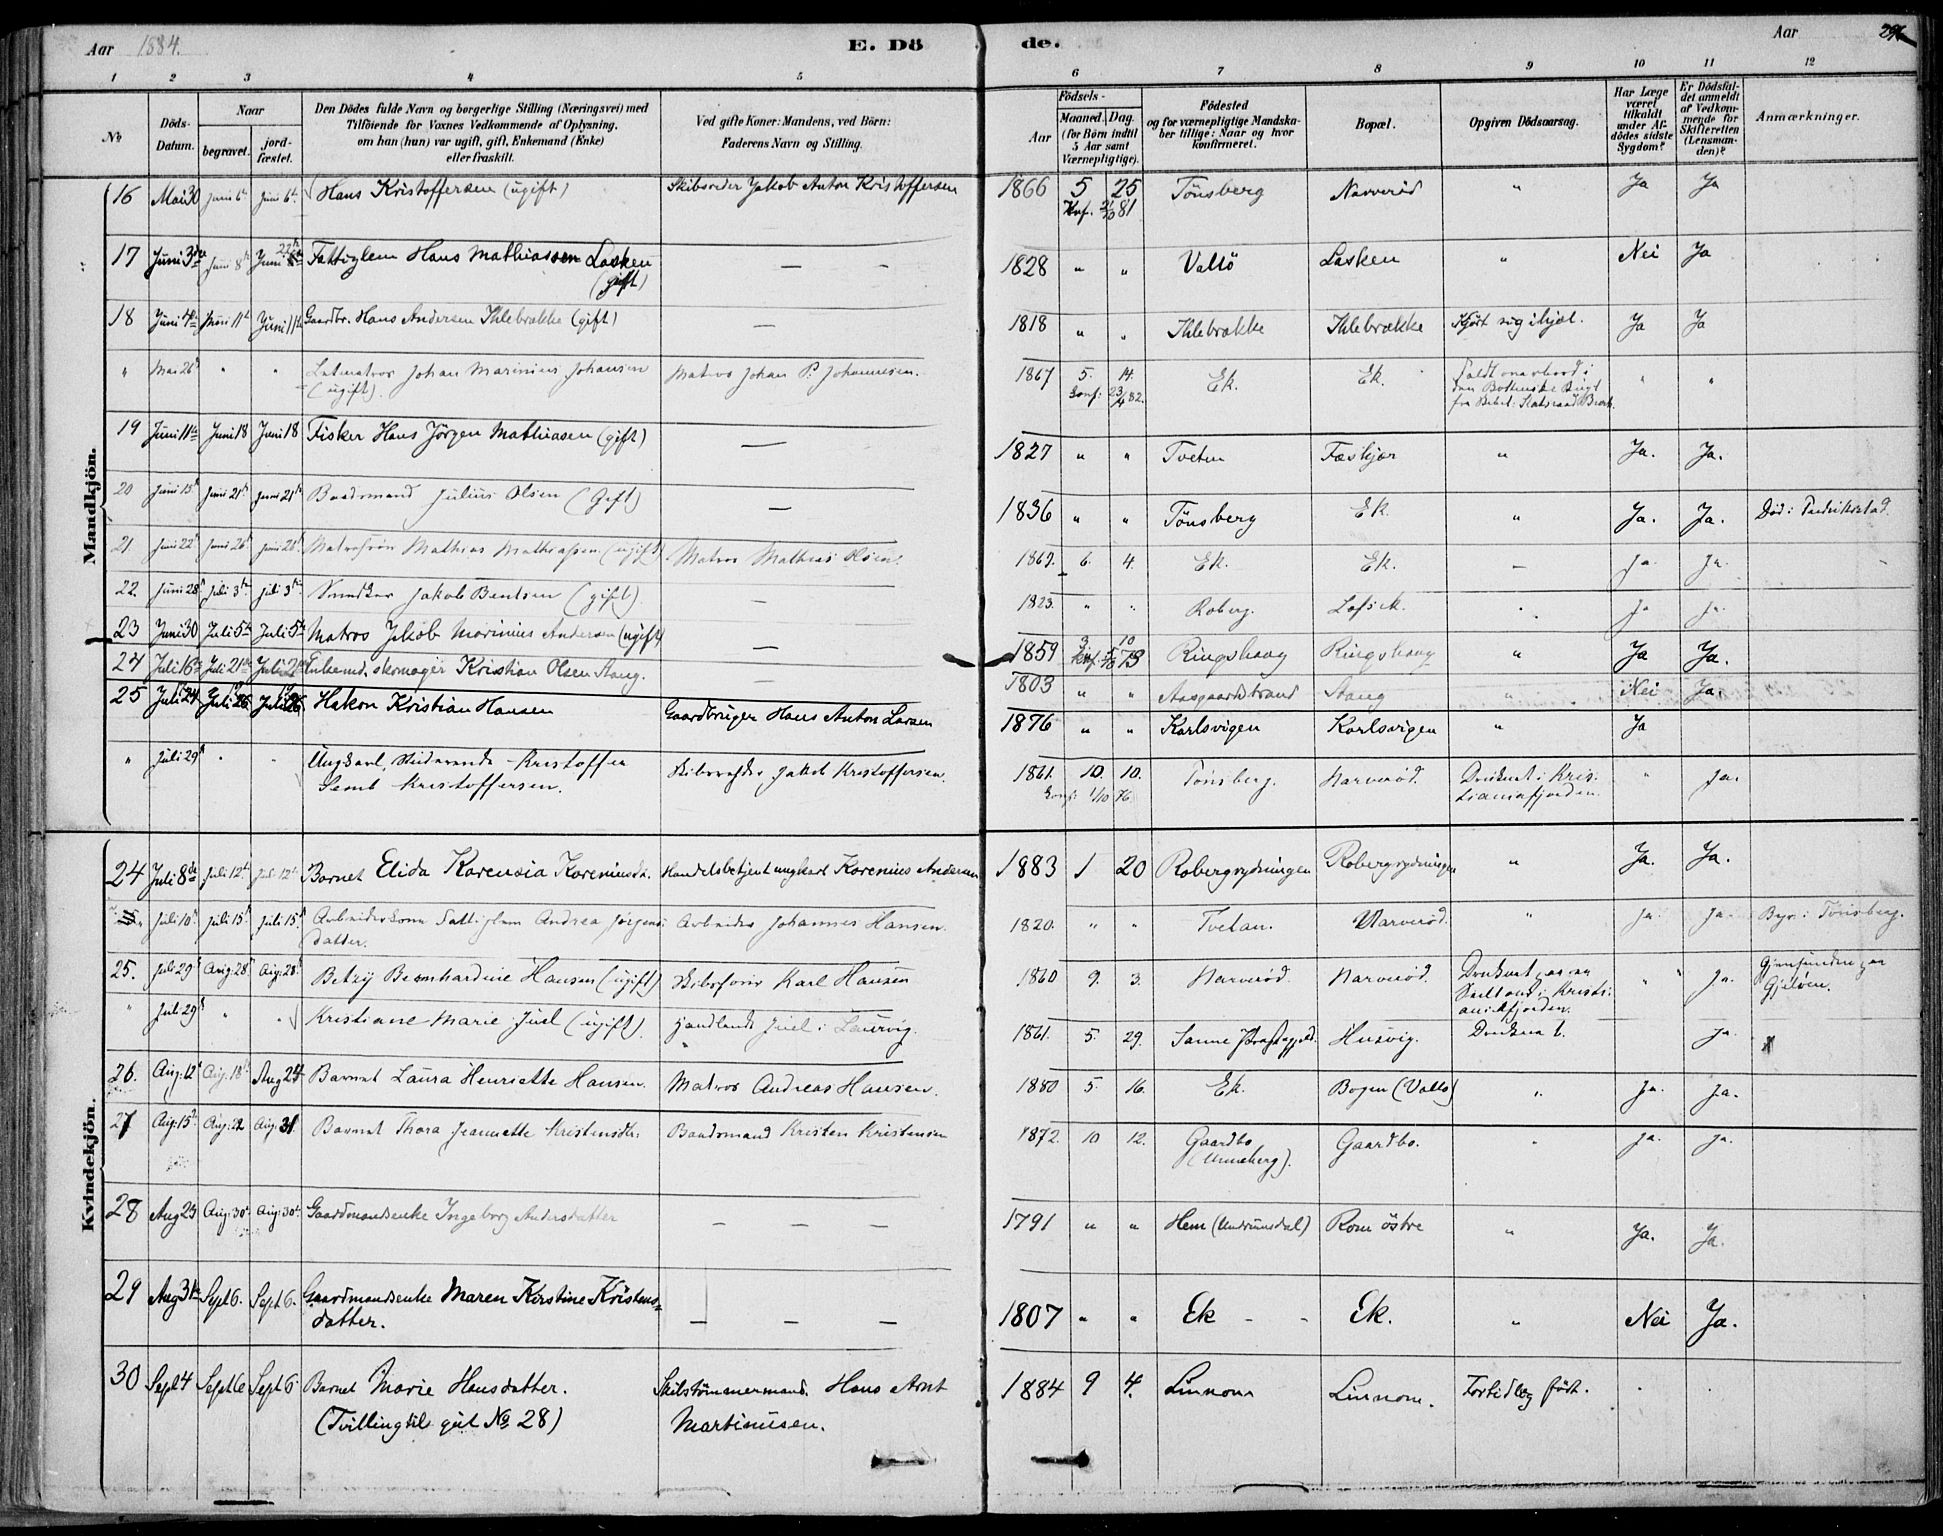 Aar 1884. E. Dö
de. Aar 296
1 2 3 4 5
6 7 8 9 10 11 12
No Döds-Datum. Naar begravet. jord-fæstet. Den Dödes fulde Navn og borgerlige Stilling (Næringsvei) med Tilföiende for Voxnes Vedkommende af Oplysning, om han (hun) var ugift, gift, Enkemand (Enke) eller fraskilt. Ved gifte Koner: Mandens, ved Börn: Faderens Navn og Stilling.
Födsels- Aar Maaned. Dag. (for Börn indtil 5 Aar samt Værnepligtige). Födested og for værnepligtige Mandskaber tillige: Naar og hvor konfirmeret. Bopæl. Opgiven Dödsaarsag. Har Læge været tilkaldt under Afdödes sidste Sygdom? Er Dödsfaldet anmeldt af Vedkommende for Skifteretten (Lensmanden)? Anmærkninger.
Mandkjön.
16 Mai 30 Juni 6t Juni 6t Hans Kristoffersen (ugift) Skibsreder Jakob Anton Kristoffersen 1866 5 25 Tönsberg Narveröd " Ja Ja
Konf. 2/10 81
17 Juni 3die Juni 8t Juni Fattiglem Hans Mathiassen Lasken (gift) — — 1828 " " Vallö Lasken " Nei Ja
18 Juni 4de Juni 11t Juni 11t Gaardbr. Hans Andersen Ihlebrække (gift) — 1818 " " Ihlebrække Ihlebrække Kjört sig ihjel. Ja Ja
" Mai 26d " " Letmatros Johan Marinius Johansen (ugift). Matros Johan P. Johannesen. 1867 5. 14. Ek. Ek. Faldt overbord i den Bottniske Bugt " "
Konf: 23/4 82.
19 Juni 11te Juni 18 Juni 18 Fisker Hans Jörgen Mathiasen (gift) — 1827 " " Tveten Fæskjær " Ja. Ja.
20 Juni 15d Juni 21d Juni 21d Baadsmand Julius Olsen (Gift) — 1836 " " Tönsberg Ek " Ja. Ja. Död i Fredrikstad.
21 Juni 22d Juni 26d Juni 26d Matrossön Mathias Mathiassen (ugift) Matros Mathias Olsen. 1869. 6. 4. Ek. Ek. — Ja. Ja.
22. Juni 28d Juli 3die Juli 3die Snedker Jakob Bentsen (gift) — 1823. " " Roberg. " Ja Ja.
23 Juni 30 Juli 5te Juli 5te Matros Jakob Marinius Andersen (ugift) — 1859 3 10 Ringshaug Ringshaug " Ja Ja.
Konf. 5/10 73
24 Juli 16de Juli 21de Juli 21de Enkemd. skomager Kristian Olsen Stang. — 1803 " " Aasgaardstrand Stang " Nei Ja.
25 Juli 24 Juli 26 Juli 26 Hakon Kristian Hansen Gaardbruger Hans Anton Larsen 1876 " " Karlsvigen Karlsvigen " Ja
" Juli 29d " " Ungkarl, Studerende Kristoffer Semb Kristoffersen. Skibsreder Jakob Kristoffersen. 1861. 10. 10. Tönsberg. Narveröd. Druknet i Kristianiafjorden. " Ja.
Konf: 1/10 76
Kvindekjön.
24 Juli 8de Juli 12t Juli 12t Barnet Elida Karensia Koreniusdr. Handelsbetjent ungkarl Korenius Andersen 1883 1 20 Robergrydningen Robergrydningen " Ja. Ja.
" Juli 10d Juli 15d Juli 15d Arbeiderkone Fattiglem Andrea Jörgensdatter. Arbeider Johannes Hansen. 1820. " " Tvetan. Narveröd. " Ja. Ja. Bgr. i Tönsberg.
25. Juli 29d Aug: 28d Aug: 28d Betzy Bernhardine Hansen (ugift) Skibsförer Karl Hansen 1860 9. 3. Narveröd. Narveröd. Druknet paa en Seiltour i Kristianiafjorden. " Ja. Gjenfunden paa Gjelöen.
" Juli 29d " " Kristiane Marie Juel (ugift). Handlende Juel i Laurvig. 1861. 5. 29. Sanne Præstegjeld. Husvig. Druknet. Ja.
26. Aug. 12d Aug. 18d Aug 24 Barnet Laura Henriette Hansen. Matros Andreas Hansen. 1880 5. 16. Ek. Bogen (Vallö) " Ja. Ja.
27 Aug: 15d Aug: 22 Aug: 31 Barnet Thora Jeannette Kristensdtr. Baadsmand Kristen Kristensen 1872. 10 12. Gaardbo (Unneberg). Gaardbo. " Ja. Ja.
28 Aug 23 Aug: 30t Aug: 30t Gaardmandsenke Ingeborg Andersdatter — — — 1791 " " Hem (Undrumsdal) Rom östre " Ja. Ja.
29 Aug 31te Sept 6. Sept 6. Gaardmandsenke Maren Kirstine Kristensdatter. — — — 1807 " " Ek Ek. " Nei Ja.
30 Sept 4 Sept 6 Sept 6 Barnet Marie Hansdatter. Skibstömmermand. Hans Arnt Martinusen. 1884 9 4. Linnom Linnom. Fortidlig född. " "
(Tvilling til gut No 28)